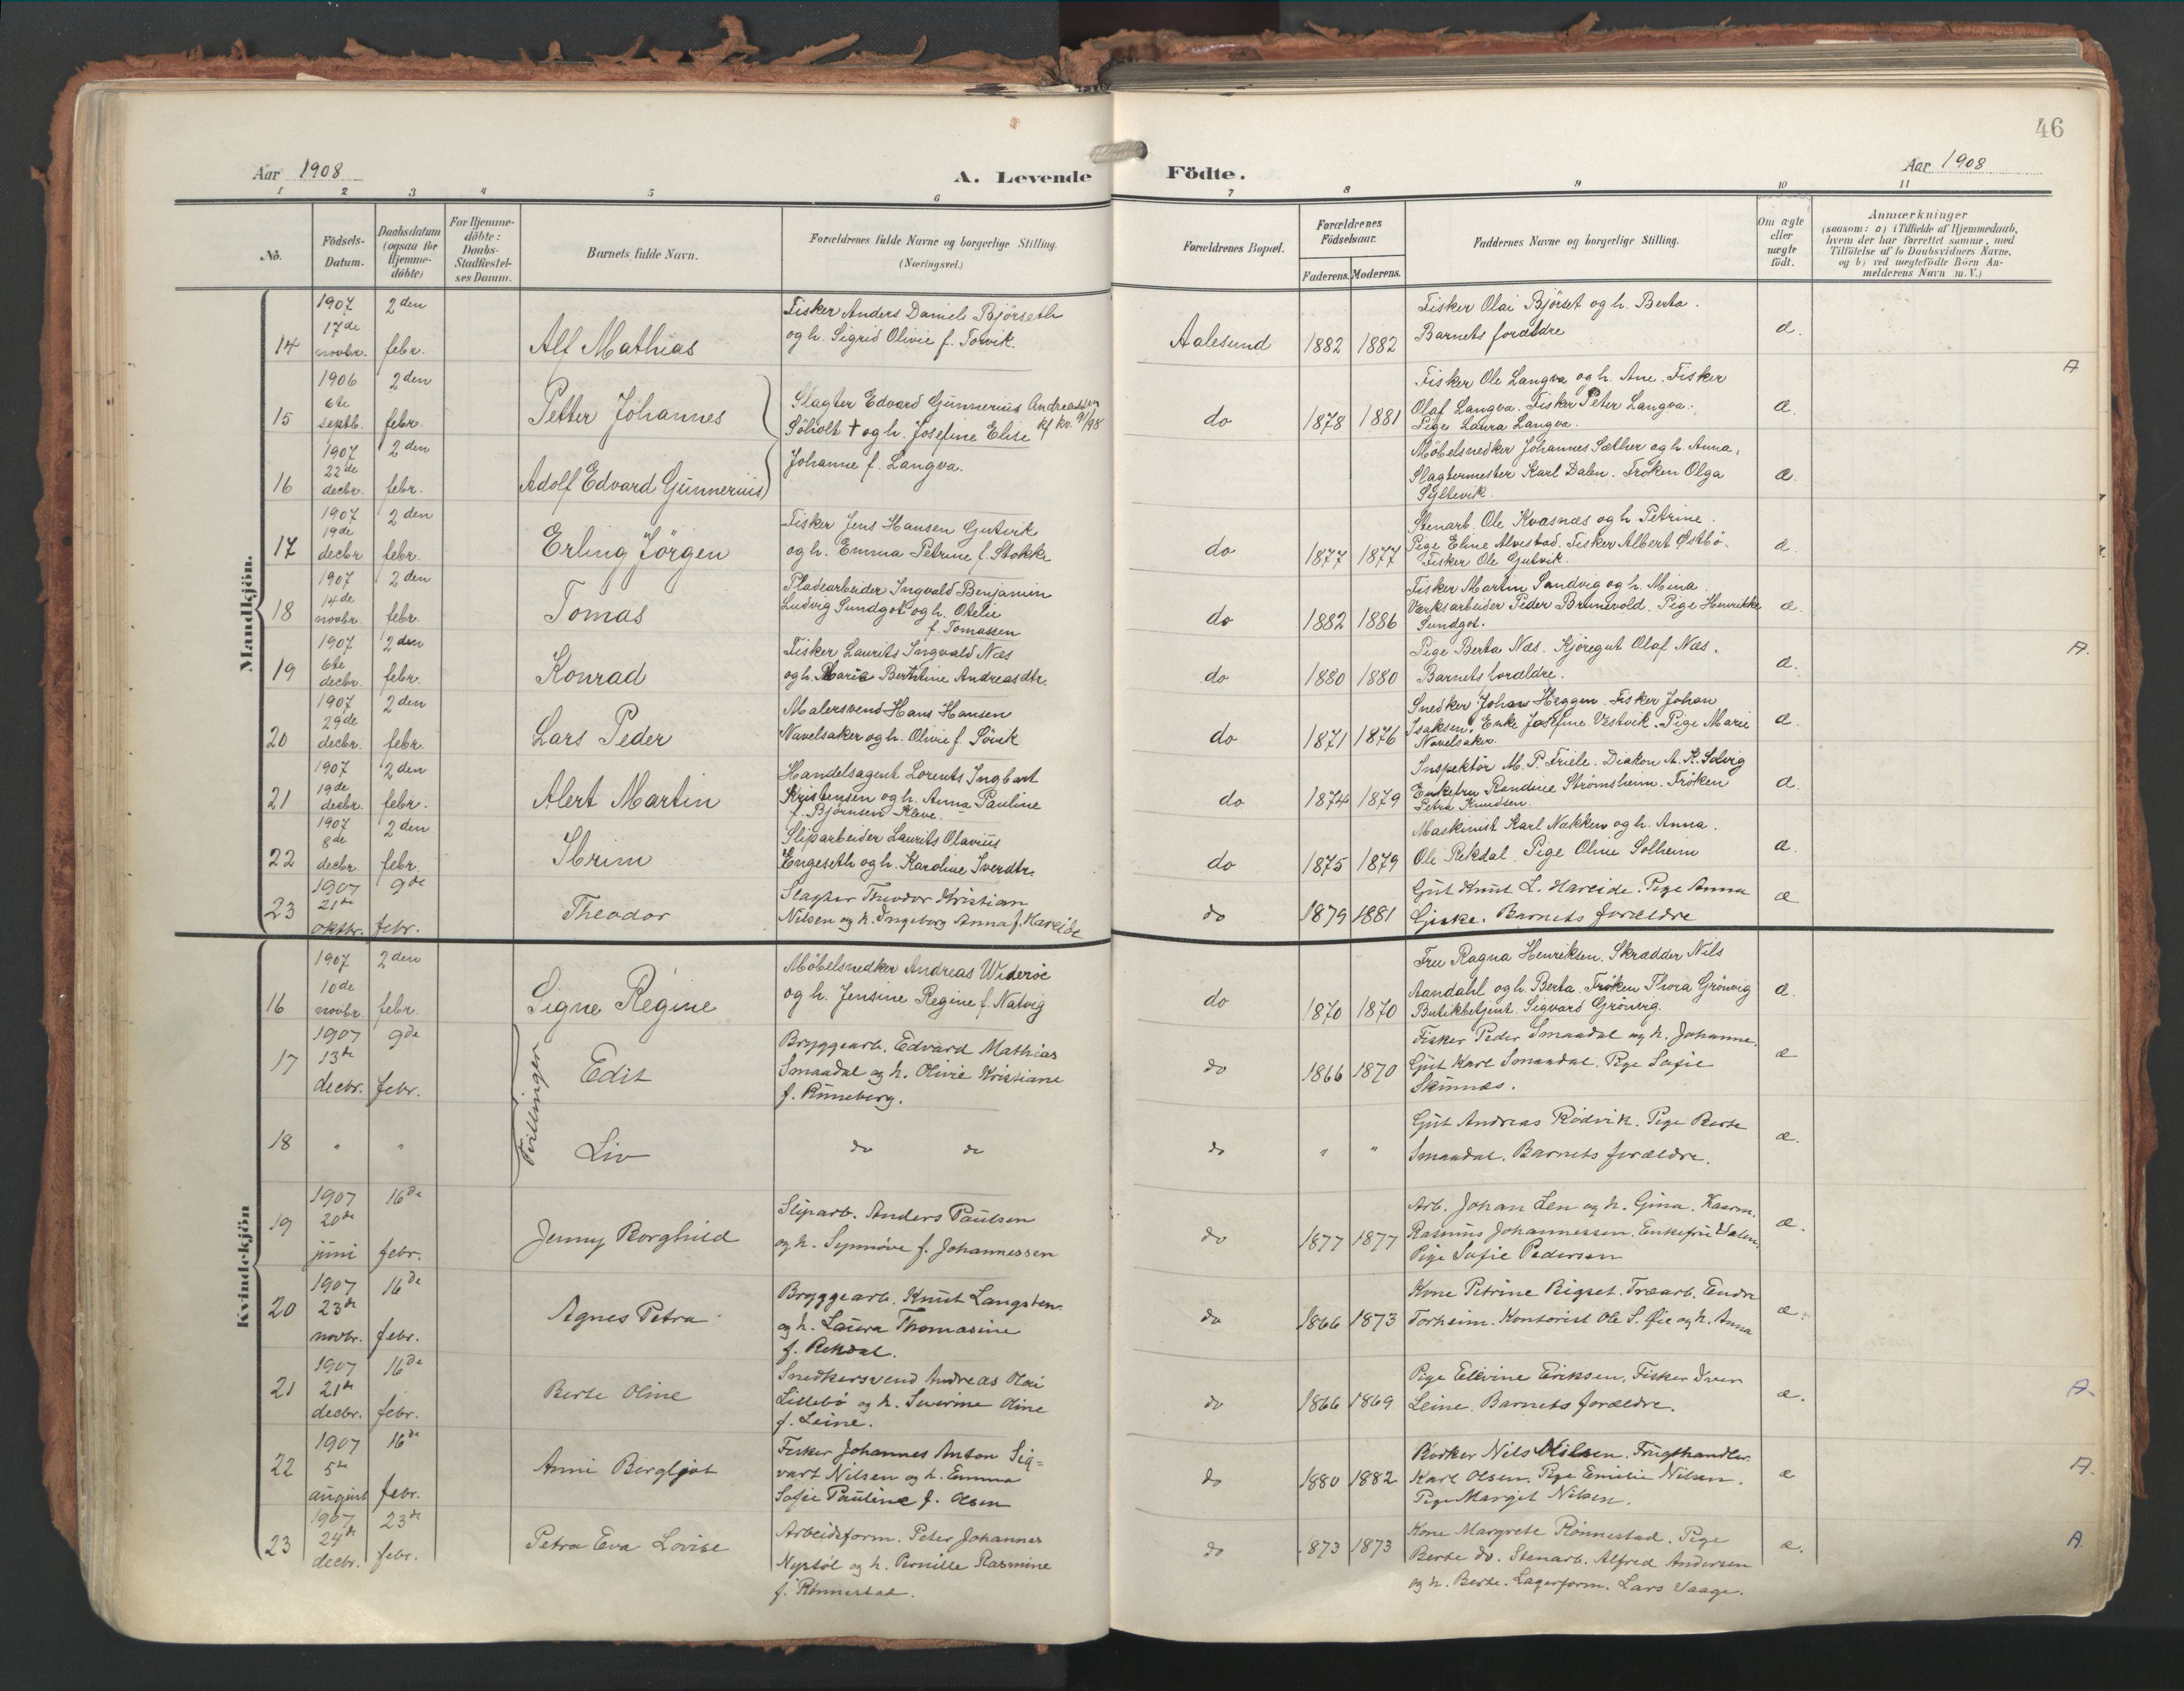 46
Aar 1908
A. Levende Födte.
Aar 1908
1 2 3 4 5 6 7 8 9 10 11
No.
Födsels-
Datum.
Daabsdatum
(ogsaa for
Hjemme-
döbte)
For Hjemme-
döbte:
Daabs-
Stadfæstel-
ses Datum.
Barnets fulde Navn.
Forældrenes fulde Navne og borgerlige Stilling.
(Næringsvei.)
Forældrenes Bopæl.
Forældrenes
Födselsaar.
Faderens. Moderens.
Faddernes Navne og borgerlige Stilling.
Om ægte
eller
uægte
födt.
Anmærkninger
(saasom: a) i Tilfælde af Hjemmedaab,
hvem der har forrettet samme, med
Tilföielse af to Daabsvidners Navne.
og b) ved uægtefödte Börn An-
melderens Navn m. V.)
Mandkjön.
14
1907
17de
novbr.
2den
febr.
Alf Mathias
Fisker Anders Daniels Björseth
og h. Sigrid Olivie f. Torvik.
Aalesund
1882 1882
Fisker Olai Björset og h. Berta.
Barnets forældre
æ.
15
1906
6te
septb.
2den
febr.
Petter Johannes
Slagter Edvard Gunnerius Andreassen
Söholt † og h. Josefine Elise kf kv. 9/98
do
1878 1881
Fisker Ole Langva og h. Ane. Fisker
Olaf Langva. Fisker Peter Langva.
Pige Laura Langva.
æ.
A
16
1907
22de
decbr.
2den
febr.
Adolf Edvard Gunnerius
Johanne f. Langva.
Möbelsnedker Johannes Sæther og h. Anna,
Slagtermester Karl Dalen. Fröken Olga
Syltevik.
æ.
17
1907
19de
decbr
2den
febr.
Erling Jörgen
Fisker Jens Hansen Gutvik
og h. Emma Petrine f. Stokke
do
1877 1877
Stenarb. Ole Kvasnæs og h. Petrine.
Pige Eline Alvestad. Fisker Albert Østbö.
Fisker Ole Gutvik.
æ.
18
1907
14de
novbr.
2den
febr.
Tomas
Pladearbeider Ingvald Benjamin
Ludvig Sundgot og h. Otelie
f. Tomassen
do
1882 1886
Fisker Martin Sandvig og h. Mina.
Værksarbeider Peder Brunevold. Pige Henrikke
Sundgot.
æ.
19
1907
6te
decbr.
2den
febr.
Konrad
Fisker Laurits Ingvald Næs
og h. Maria Berntine Andreasdtr.
do
1880 1880
Pige Berta Næs. Kjöregut Olaf Næs.
Barnets forældre.
æ.
A.
20
1907
29de
decbr.
2den
febr.
Lars Peder
Malersvend Hans Hansen
Navelsaker og h. Olivie f. Sövik
do
1871 1876
Snedker Johan Heggen. Fisker Johan
Isaksen. Enke Josefine Vestvik. Pige Marie
Navelsaker.
æ.
21
1907
19de
decbr.
2den
febr.
Alert Martin
Handelsagent Lorents Ingbart
Kristensen og h. Anna Pauline
f. Björnsen Kleve.
do
1874 1879
Inspektör M. P. Friele. Diakon A. K. Solvig
Enkefru Randine Strömsheim. Fröken
Petra Knudsen.
æ.
22
1907
8de
decbr.
2den
febr.
Ibrim
Sliparbeider Laurits Olavius
Engeseth og h. Karoline Iverdtr.
do
1875 1879
Maskinist Karl Nakken og h. Anna.
Ole Rekdal. Pige Oline Solheim
æ.
23
1907
21de
oktbr.
9de
febr.
Theodor
Slagter Theodor Kristian
Nilsen og h. Ingeborg Anna f. Hareide
do
1879 1881
Gut Knut L. Hareide. Pige Anna
Giske. Barnets forældre
æ
Kvindekjön
16
1907
10de
novbr.
2den
febr.
Signe Regine
Möbelsnedker Andreas Wideröe
og h. Jensine Regine f. Natvig
do
1870 1870
Fru Ragna Henriksen. Skrædder Nils
Aandahl og h. Berta. Fröken Thora Grönvig
Butikbetjent. Sigvard Grönvig.
æ.
Tvillinger
17
1907
13de
decbr.
9de
febr.
Edit
Bryggearb. Edvard Mathias
Smaadal og h. Olivie Kristiane
f. Runeberg.
do
1866 1870
Fisker Peder Smaadal og h. Johanne.
Gut Karl Smaadal. Pige Sofie
Skinnæs.
æ
18
" "
Liv
do do
do
" "
Gut Andreas Rödvik. Pige Berte
Smaadal. Barnets forældre.
æ.
19
1907
20de
juni
16de
febr.
Jenny Borghild
Sliparb. Anders Paulsen
og h. Synnöve f. Johannessen
do
1877 1877
Arb. Johan Len og h. Gina. Kaarm.
Rasmus Johannessen. Enkefru Dalen.
Pige Sofie Pedersen
æ.
20
1907
23de
novbr.
16de
febr.
Agnes Petra
Bryggearb. Knut Langsten
og h. Laura Thomasine
f. Rekdal.
do
1866 1873
Kone Petrine Rigset. Træarb. Endre
Torheim. Kontorist Ole S. Øie og h. Anna
æ.
21
1907
21de
decbr.
16de
febr.
Berte Oline
Snedkersvend Andreas Olai
Lillebö og h. Severine Oline
f. Leine.
do
1866 1869
Pige Elevine Eriksen. Fisker Iver
Leine. Barnets forældre.
æ.
A.
22
1907
5te
august
16de
febr.
Anni Bergljot
Fisker Johannes Anton Sig=
vart Nilsen og h. Emma
Sofie Pauline f. Olsen
do
1880 1882
Bödker Nils Nilsen. Frugthandler
Karl Olsen. Pige Emilie Nilsen.
Pige Margit Nilsen.
æ
A.
23
1907
24de
decbr.
23de
febr.
Petra Eva Lovise
Arbeidsform. Peter Johannes
Nyrsöl og h. Pernille Rasmine
f. Rönnestad.
do
1873 1873
Kone Margrete Rönnestad. Pige
Berte do. Stenarb. Alfred Andersen
og h. Berte. Lagerform. Lars Vaage.
æ.
A.